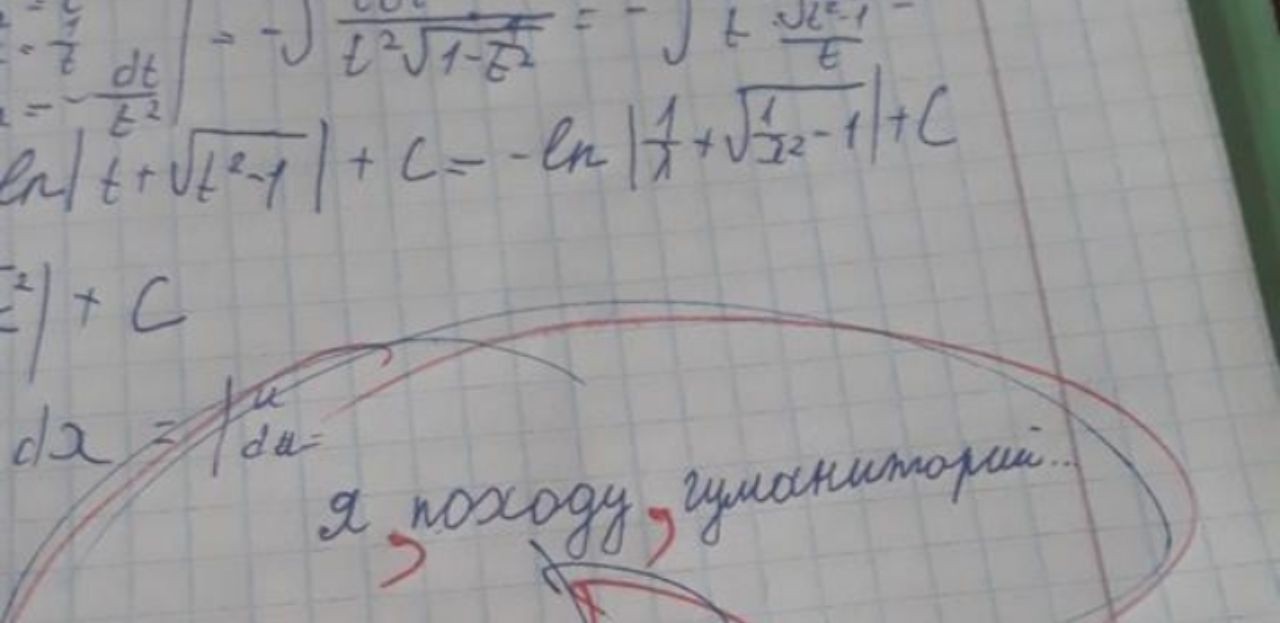 = 1/t
= -dt/t² | = -∫ / t²√(1-1/t²) = -∫ / t √(t²-1)/t
ln|t+√(t²-1)| + C = -ln|1/x+√(1/x²-1)|+C
²| + C
dx = | u
du=
Я, походу, гуманиторий...